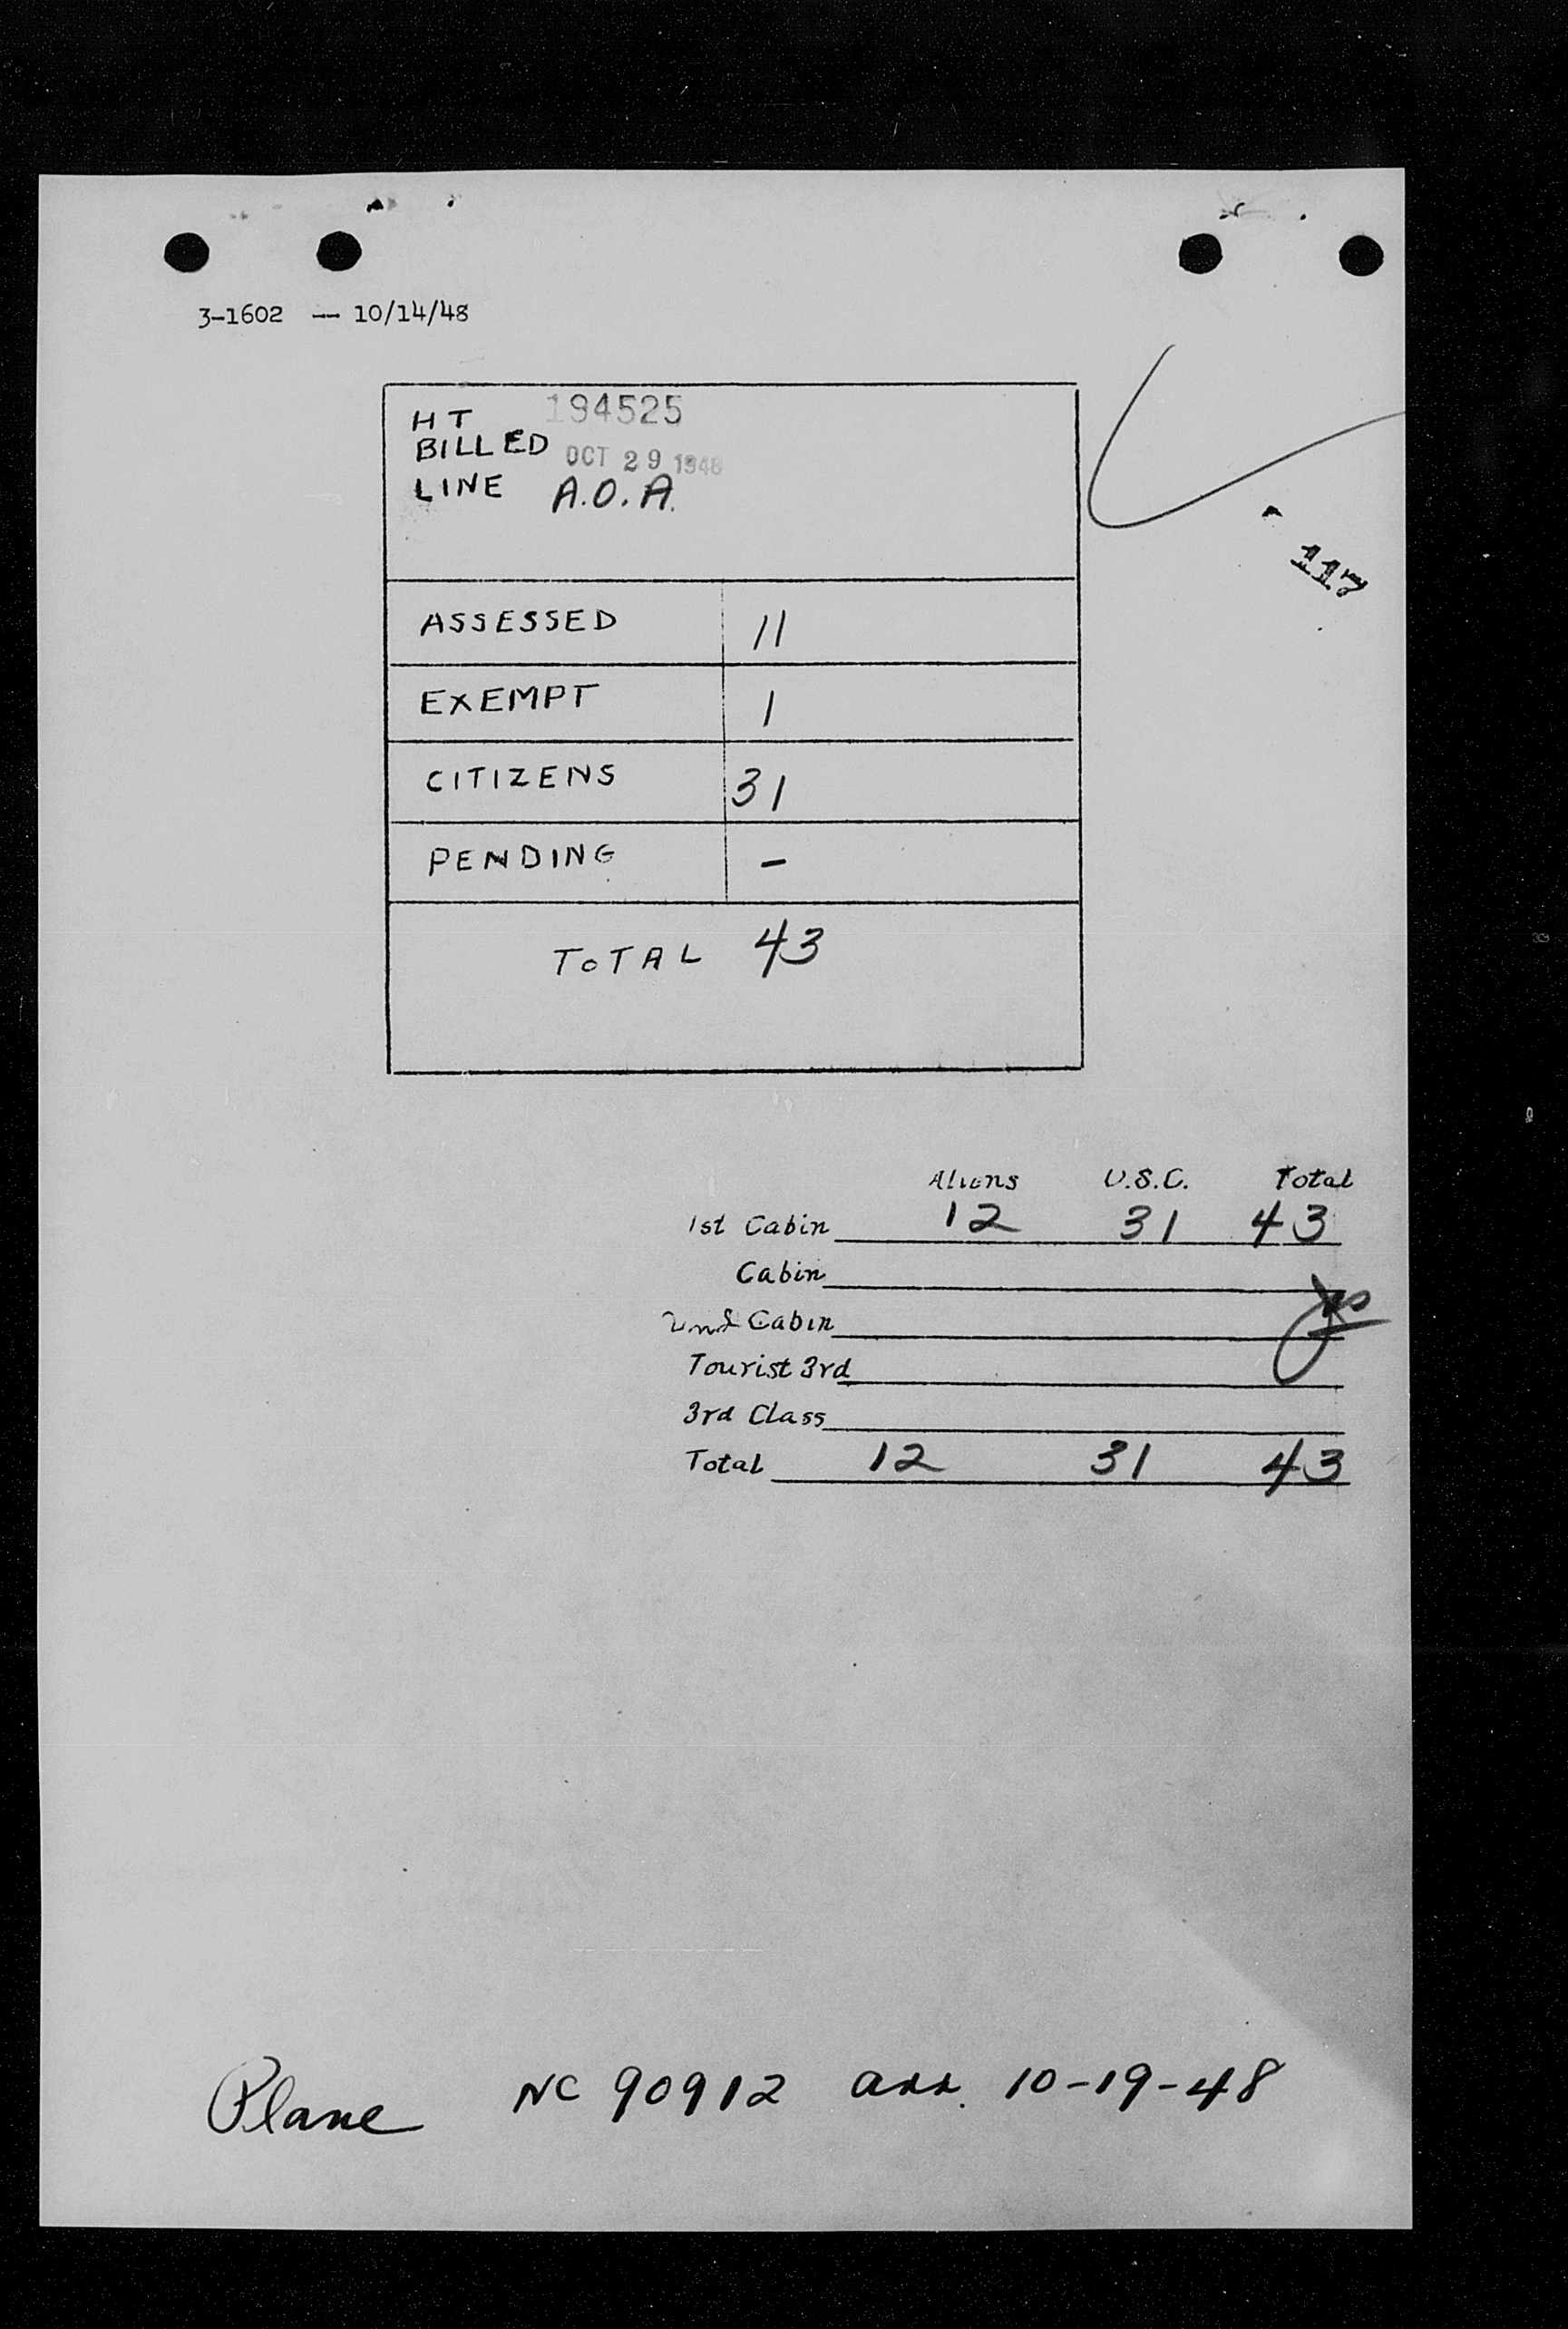 3-1602 -- 10/14/48
HT 194525
BILLED OCT 29 1948
LINE A.O.A.
117
ASSESSED 11
EXEMPT 1
CITIZENS 31
PENDING -
TOTAL 43
Aliens U.S.C. Total
1st Cabin 12 31 43
Cabin
2nd Cabin
Tourist 3rd
3rd Class
Total 12 31 43
Plane NC 90912 arr. 10-19-48